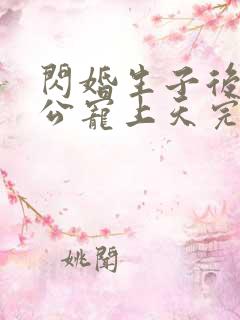 閃婚生子後
公寵上天完
姚聞